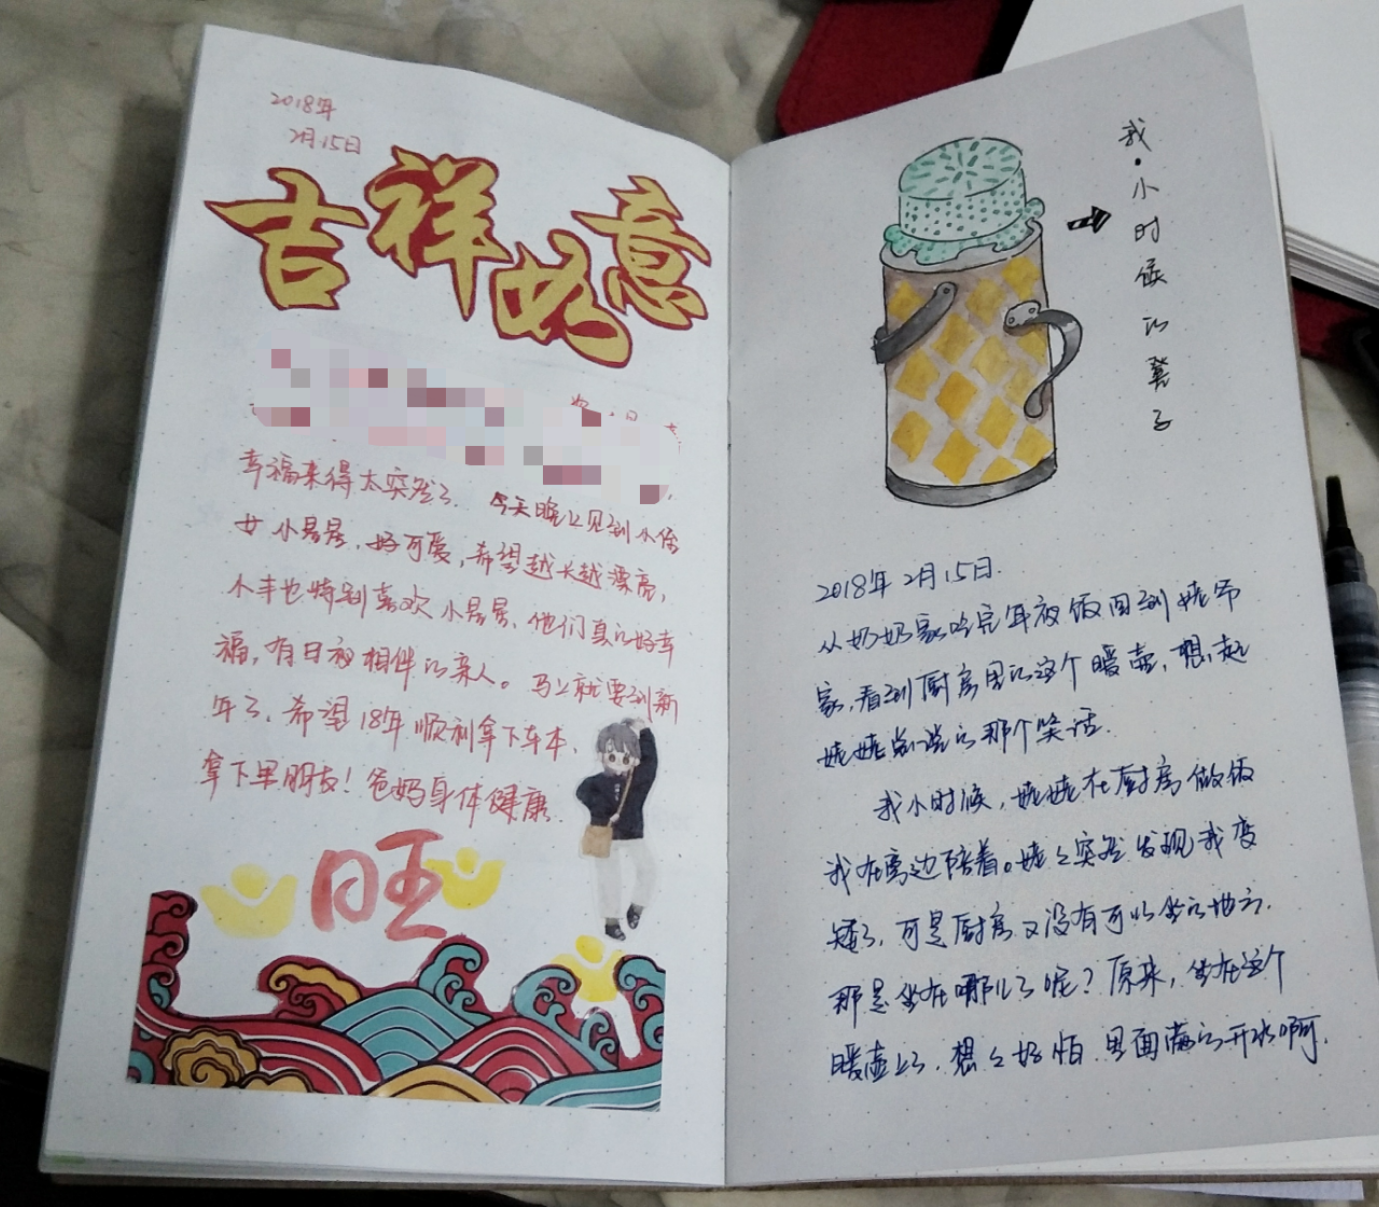 2018年
2月15日
吉祥如意
幸福来得太突然了. 今天晚上见到小侄
女小星星,好可爱,希望越长越漂亮,
小丰也特别喜欢小星星,他们真的好幸
福,有日夜相伴的亲人。马上就要到新
年了,希望18年顺利拿下车本,
拿下男朋友!爸妈身体健康.
旺
我·小时候的凳子
2018年2月15日.
从奶奶家吃完年夜饭回到姥爷
家,看到厨房里的这个暖壶,想起
姥姥常说的那个笑话.
我小时候,姥姥在厨房做饭
我在旁边陪着。姥姥突然发现我变
矮了,可是厨房又没有可以坐的地方.
那是坐在哪儿了呢?原来,坐在这个
暖壶上了.想想好怕.里面满的开水啊.